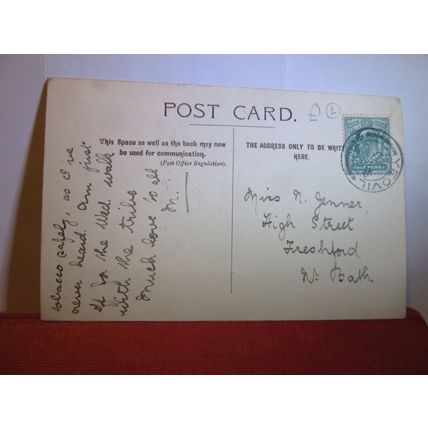 POST CARD.
£1
This Space as well as the back may now
be used for communication.
(Post Office Regulation).
THE ADDRESS ONLY TO BE WRIT
HERE.
YEOVIL
HALF PENNY
Miss N. Jenner,
High Street
Freshford
Nr. Bath.
tobacco safely, as I've
never heard. Am just
off for the Wed. walk
with the tribe
Much love to all
M.